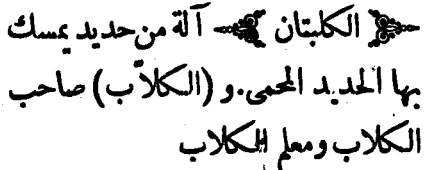 الكلبتان آلة من حديد يمسك
بها الحديد المحمى . و (الكلاّب) صاحب
الكلاب ومعلم الكلاب